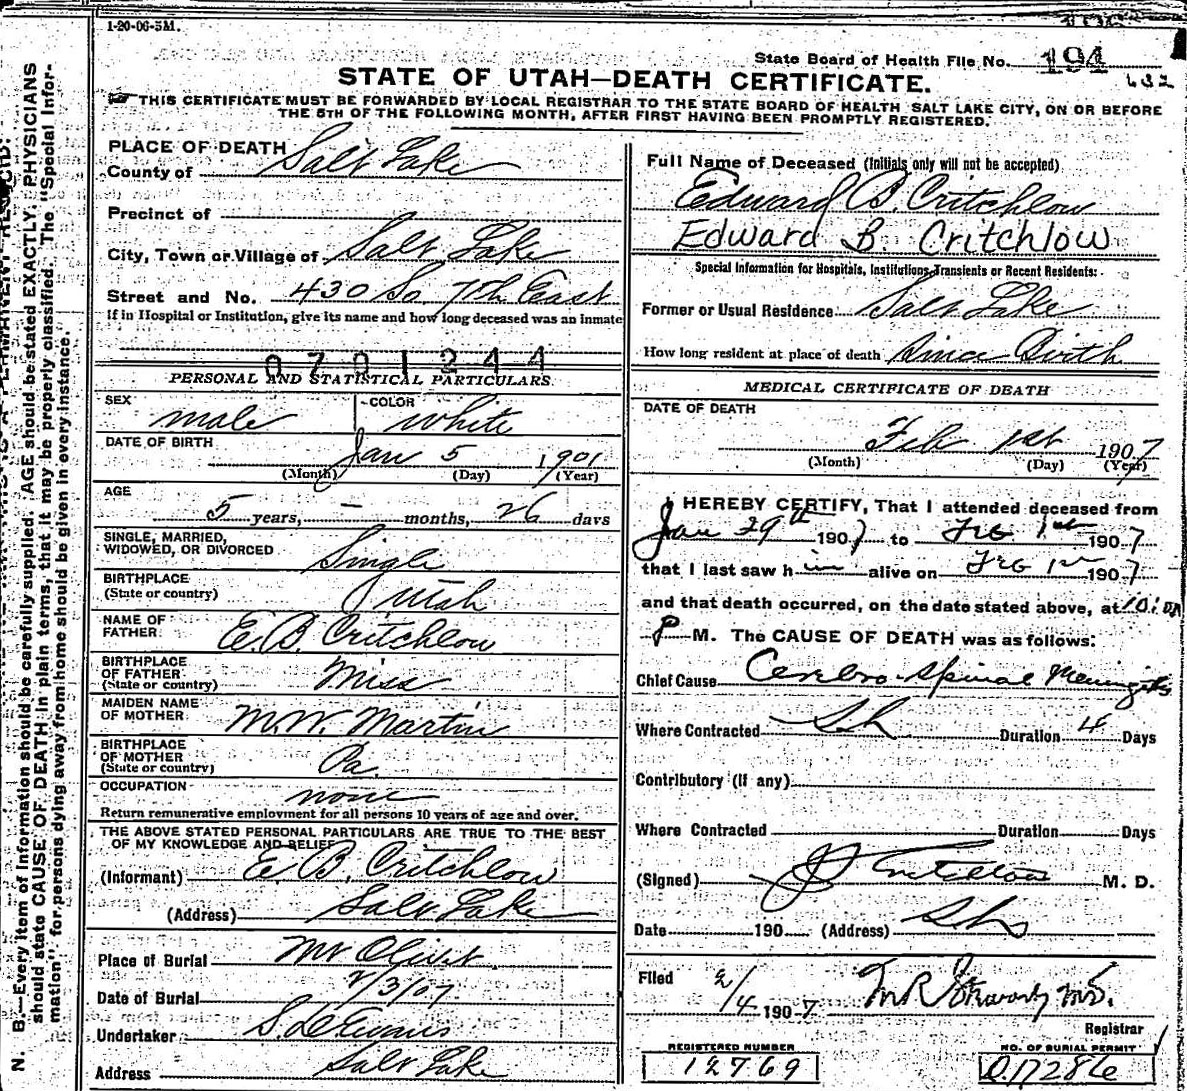 1-20-06-5M.
State Board of Health File No. 194
632
STATE OF UTAH—DEATH CERTIFICATE.
THIS CERTIFICATE MUST BE FORWARDED BY LOCAL REGISTRAR TO THE STATE BOARD OF HEALTH SALT LAKE CITY, ON OR BEFORE
THE 5TH OF THE FOLLOWING MONTH, AFTER FIRST HAVING BEEN PROMPTLY REGISTERED.
PLACE OF DEATH
County of Salt Lake
Precinct of
City, Town or Village of Salt Lake
Street and No. 430 So. 7th East
If in Hospital or Institution, give its name and how long deceased was an inmate
0701244
PERSONAL AND STATISTICAL PARTICULARS
SEX male COLOR white
DATE OF BIRTH Jan 5 1901
(Month) (Day) (Year)
AGE
5 years, — months, 26 days
SINGLE, MARRIED,
WIDOWED, OR DIVORCED Single
BIRTHPLACE
(State or country) Utah
NAME OF
FATHER E. B. Critchlow
BIRTHPLACE
OF FATHER
(State or country) Miss
MAIDEN NAME
OF MOTHER M. W. Martin
BIRTHPLACE
OF MOTHER
(State or country) Pa.
OCCUPATION none
Return remunerative employment for all persons 10 years of age and over.
THE ABOVE STATED PERSONAL PARTICULARS ARE TRUE TO THE BEST
OF MY KNOWLEDGE AND BELIEF
(Informant) E. B. Critchlow
(Address) Salt Lake
Place of Burial Mt Olivet
Date of Burial 2/3/07
Undertaker S. D. Evans
Address Salt Lake
Full Name of Deceased (Initials only will not be accepted)
Edward B Critchlow
Edward B. Critchlow
Special Information for Hospitals, Institutions, Transients or Recent Residents:
Former or Usual Residence Salt Lake
How long resident at place of death Since Birth
MEDICAL CERTIFICATE OF DEATH
DATE OF DEATH
Feb 1st 1907
(Month) (Day) (Year)
I HEREBY CERTIFY, That I attended deceased from
Jan 29th 1907 to Feb 1st 1907
that I last saw him alive on Feb 1st 1907
and that death occurred, on the date stated above, at 10:
P M. The CAUSE OF DEATH was as follows:
Chief Cause Cerebro-Spinal Meningitis
Where Contracted Duration 4 Days
Contributory (if any)
Where Contracted Duration Days
(Signed) Critchlow M. D.
Date 190 (Address)
Filed 2/4 1907 M.D.
Registrar
REGISTERED NUMBER
12769
NO. OF BURIAL PERMIT
N. B.—Every item of information should be carefully supplied. AGE should be stated EXACTLY. PHYSICIANS
should state CAUSE OF DEATH in plain terms, that it may be properly classified. The "Special Infor-
mation" for persons dying away from home should be given in every instance.